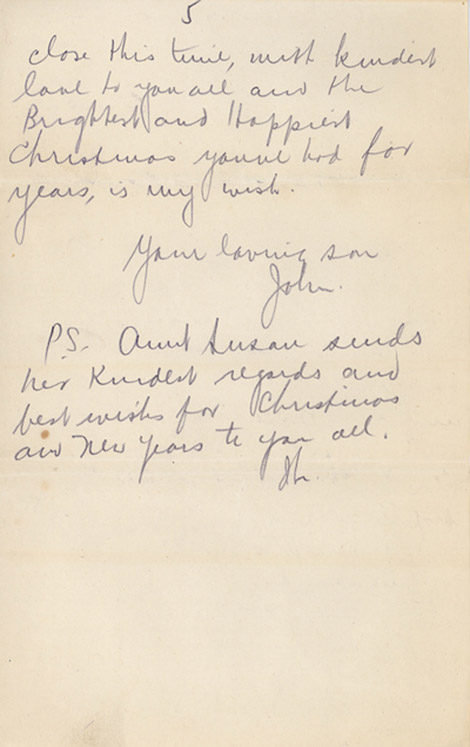 5
close this time, with kindest
love to you all and the
Brightest and Happiest
Christmas youve had for
years, is my wish.
Your loving son
John.
P.S. Aunt Susan sends
her Kindest regards and
best wishes for Christmas
and New Years to you all.